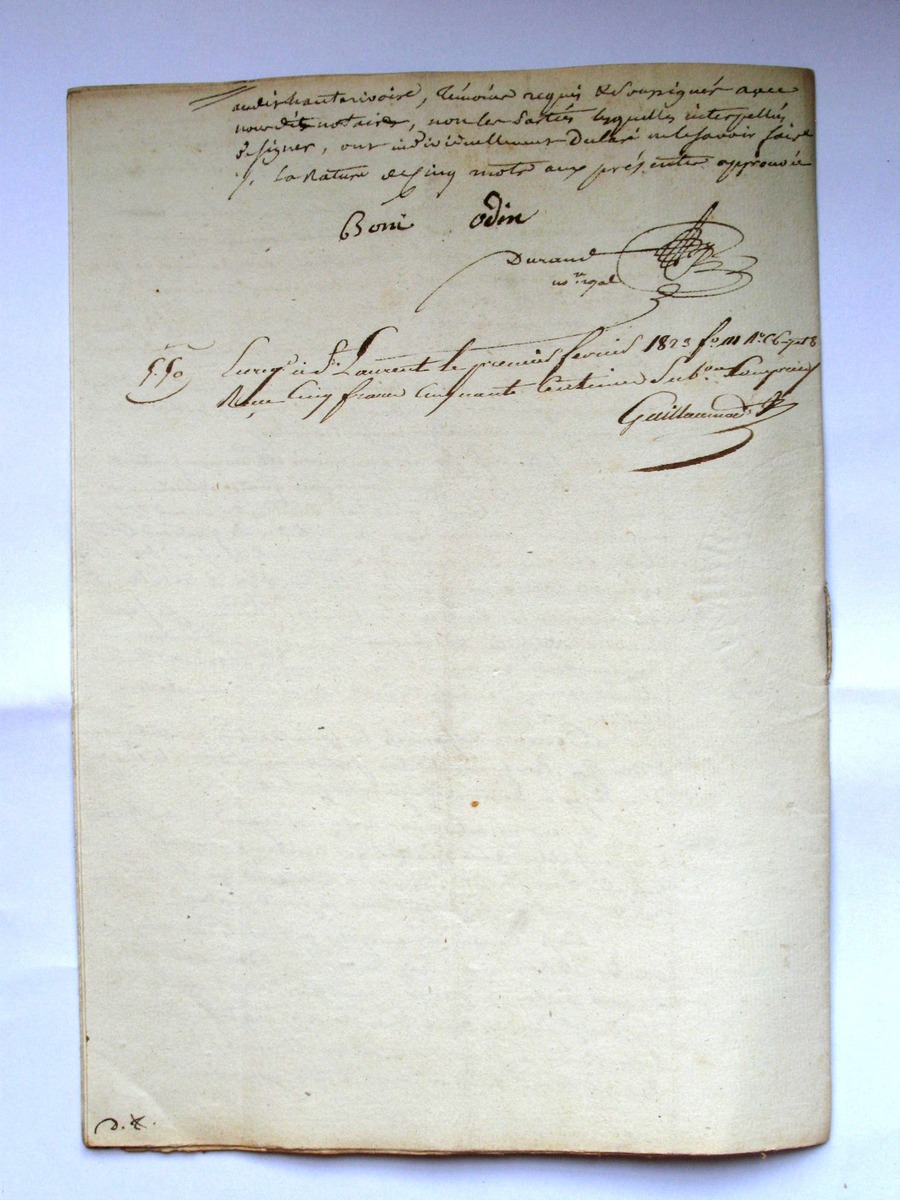 audit hauterivoire, témoins requis & soussignés avec
nous dit notaire, non les parties lesquelles interpellées
de signer, ont individuellement déclaré ne le savoir faire
, la Rature de cinq mots aux présentes approuvée
Boni odin
Durand
no.re royal
5.50 Enreg.é à S.t Laurent le premier fevrier 1823 f.o
Reçu cinq francs cinquante centimes Sub.on comprise
Guillaumad
D.X.